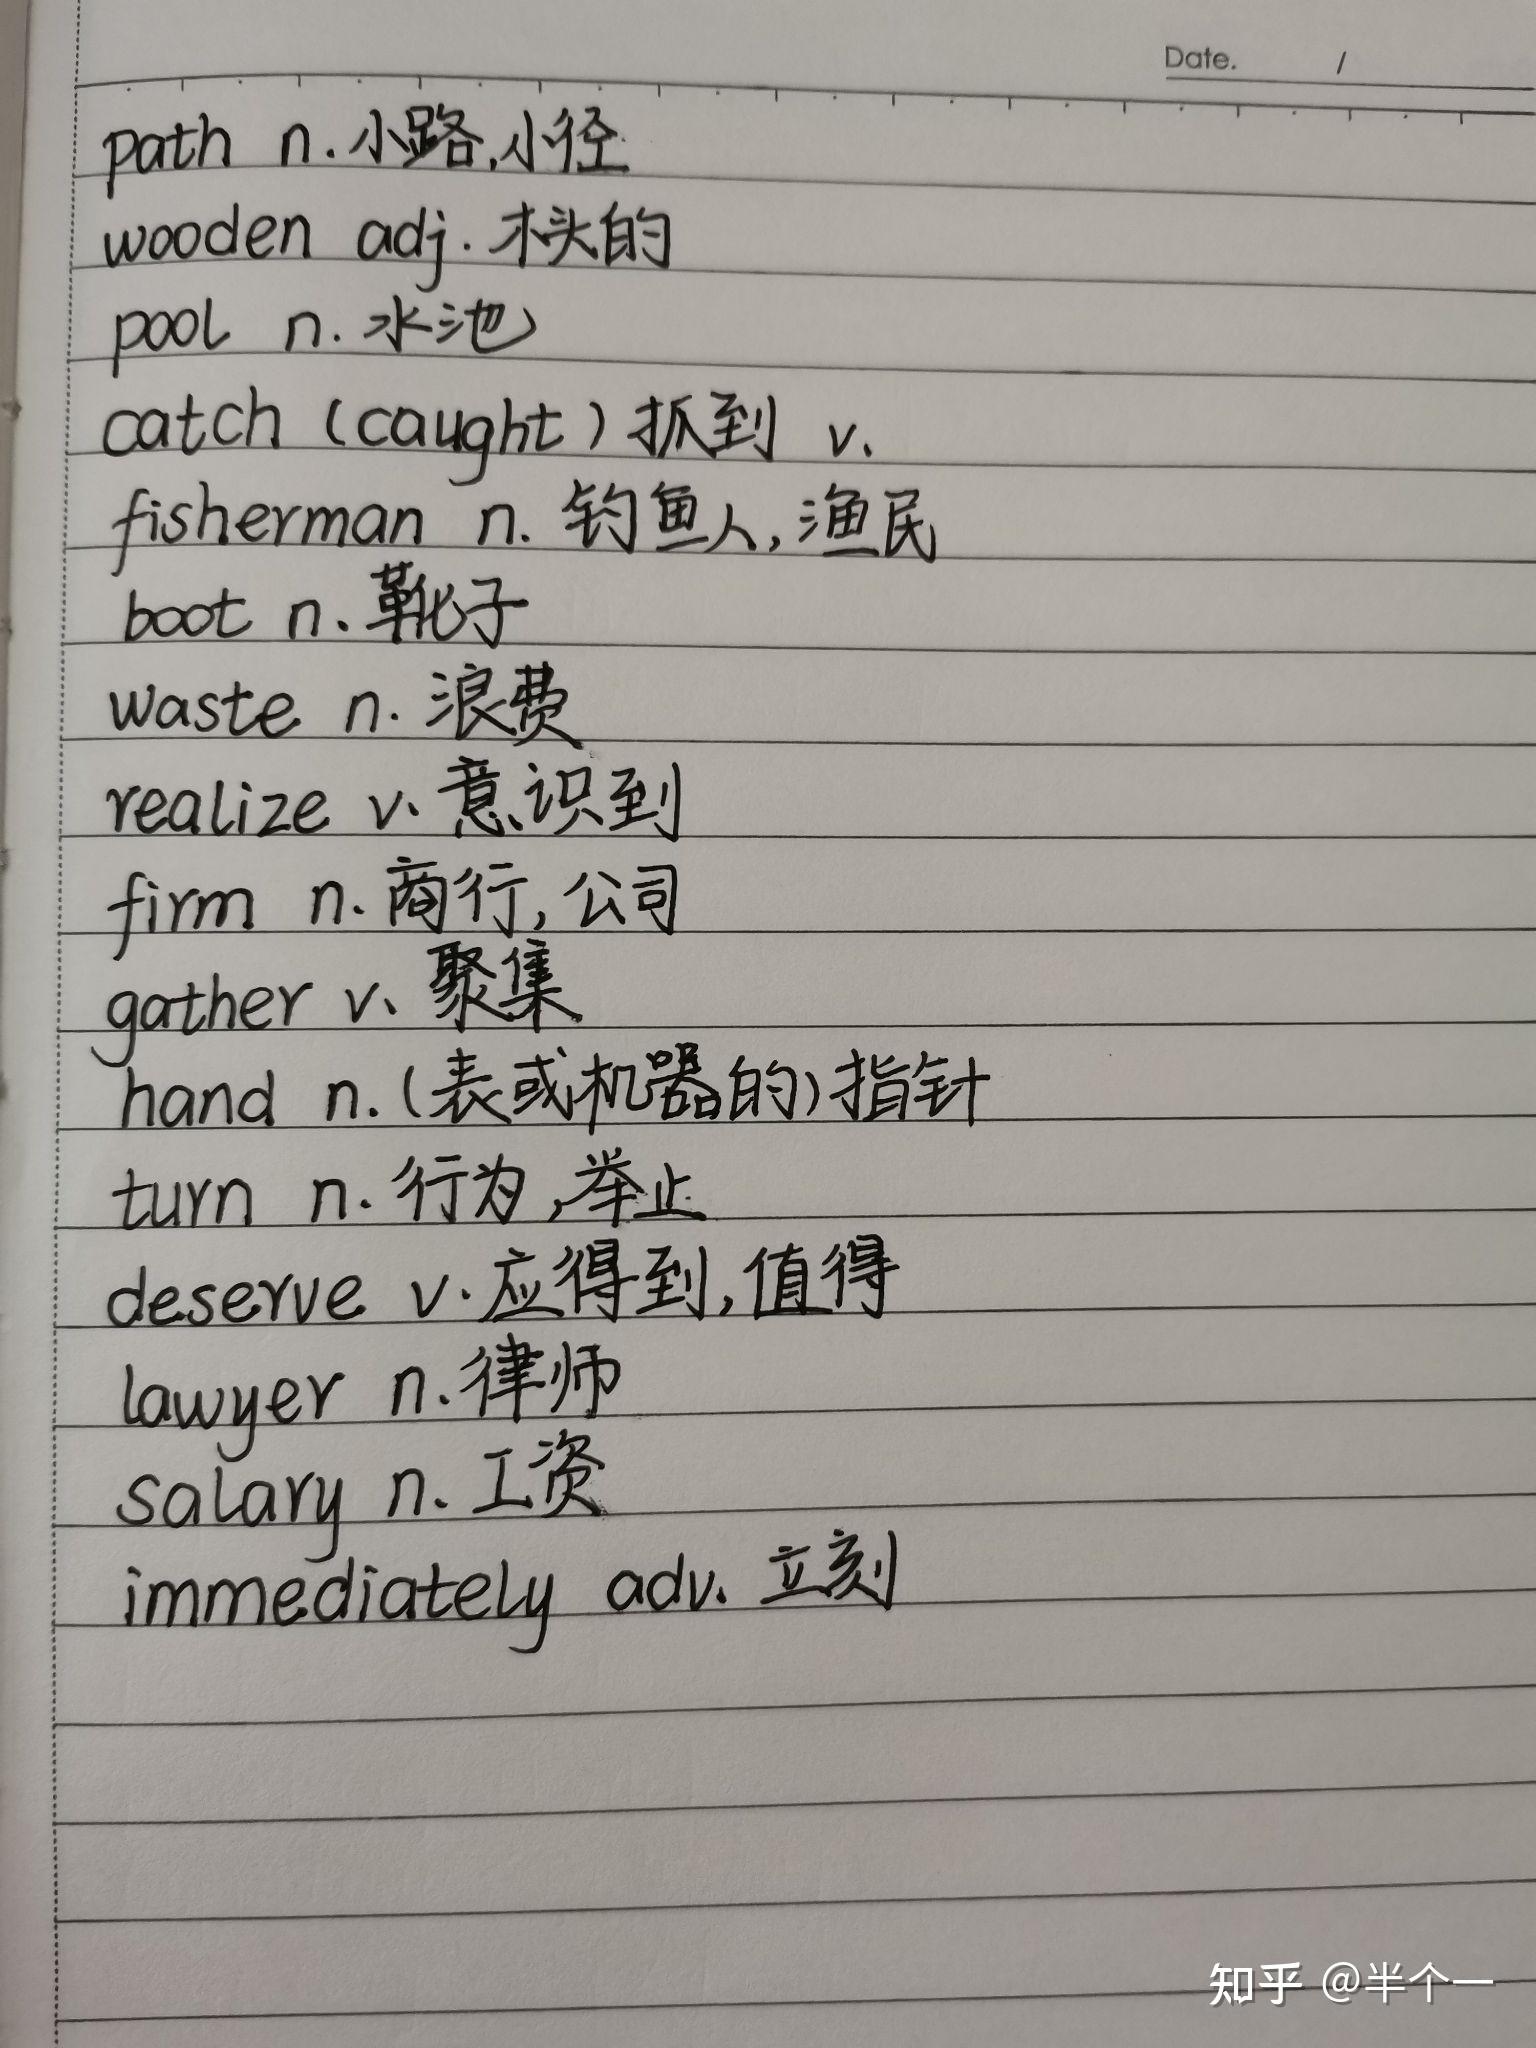 Date. /
path n. 小路,小径
wooden adj. 木头的
pool n. 水池
catch (caught) 抓到 v.
fisherman n. 钓鱼人, 渔民
boot n. 靴子
waste n. 浪费
realize v. 意识到
firm n. 商行, 公司
gather v. 聚集
hand n. (表或机器的) 指针
turn n. 行为, 举止
deserve v. 应得到, 值得
lawyer n. 律师
salary n. 工资
immediately adv. 立刻
知乎 @半个一